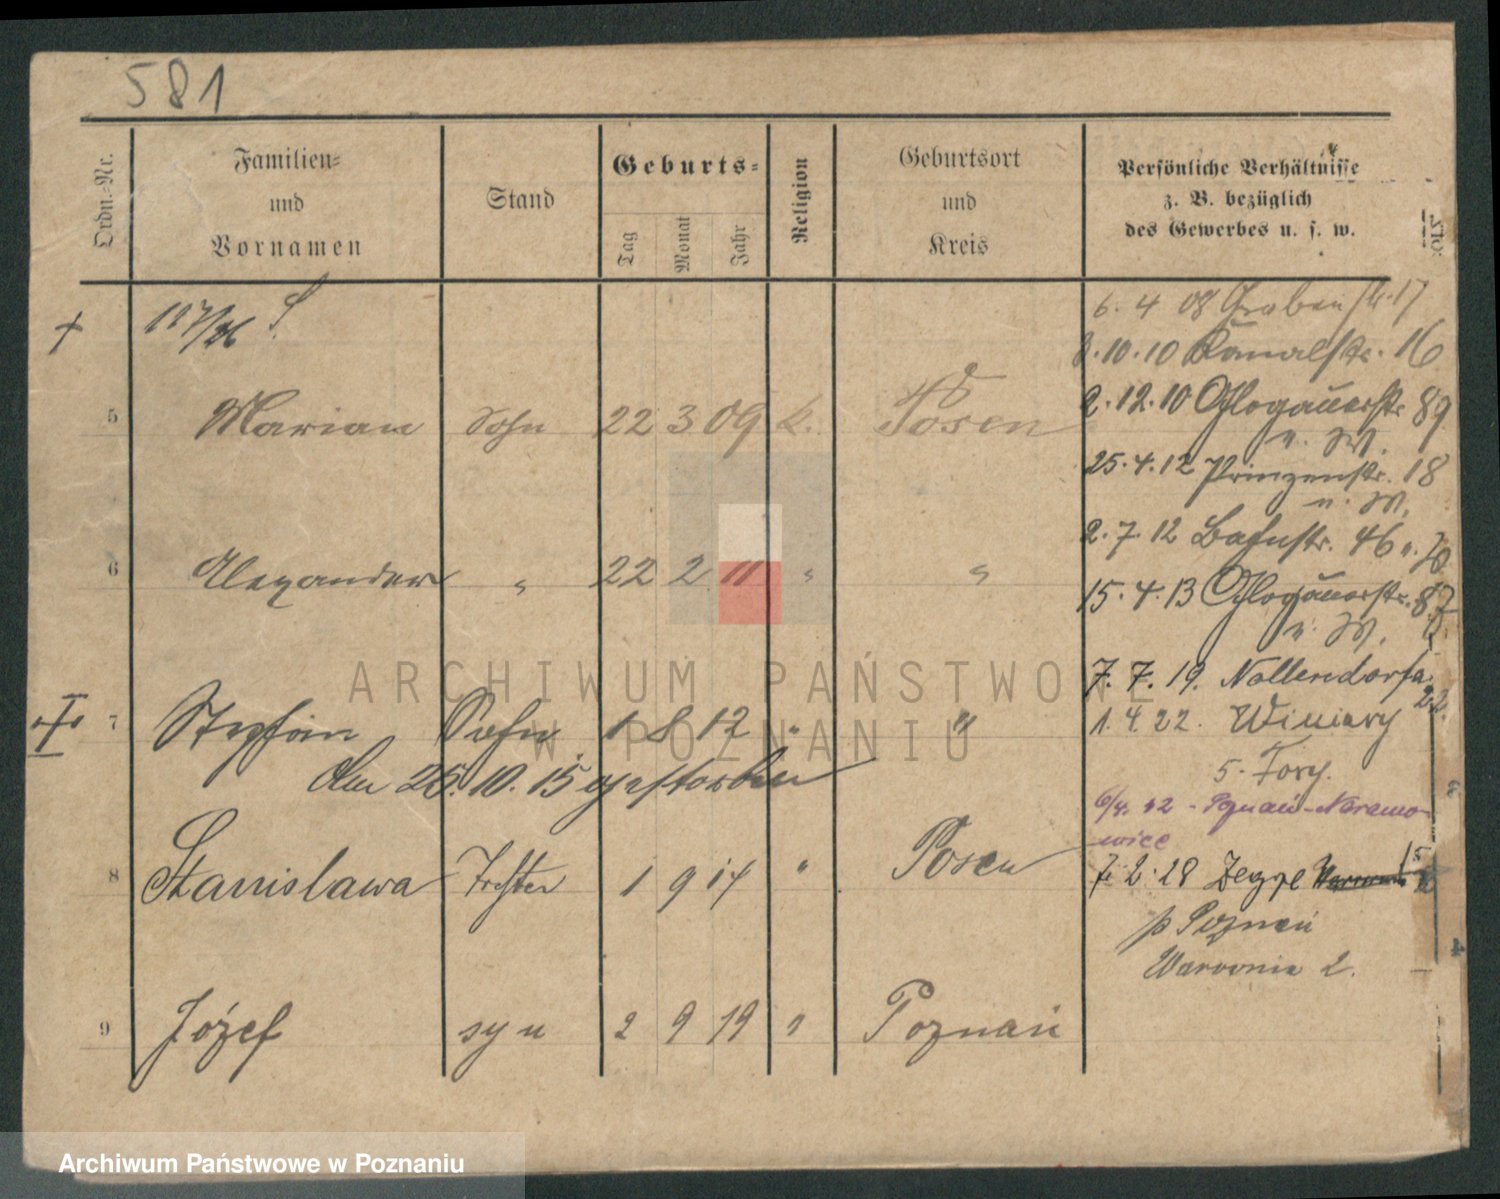 581
Ordn.-Nr.
Familien-
und
Vornamen
Stand
Geburts-
Tag
Monat
Jahr
Religion
Geburtsort
und
Kreis
Persönliche Verhältnisse
z. B. bezüglich
des Gewerbes u. s. w.
6. 4 08 Graben str. 17
10.10 Kanalstr. 16
2.12.10 Glogauerstr. 89
u. W.
25.4.12 Prinzenstr. 18
u. W.
2.7.12 Bahnstr. 46 u.
15.4.13 Glogauerstr. 87
u. W.
7.7.19. Nollendorfa
22.
1.4.22. Winiary
5. Fort.
Poznań-Naramo-
wice
2.28 Zegrze
p Poznań
5 Marian Sohn 22 3 09 k. Posen
6 Alexander " 22 2 11 " "
7 Stephan Sohn 1 8 12 " "
Am 25.10.15 gestorben
8 Stanislawa Tochter 1 9 14 " Posen
9 Józef syn 2 9 19 " Poznań
ARCHIWUM PAŃSTWOWE
W POZNANIU
Archiwum Państwowe w Poznaniu